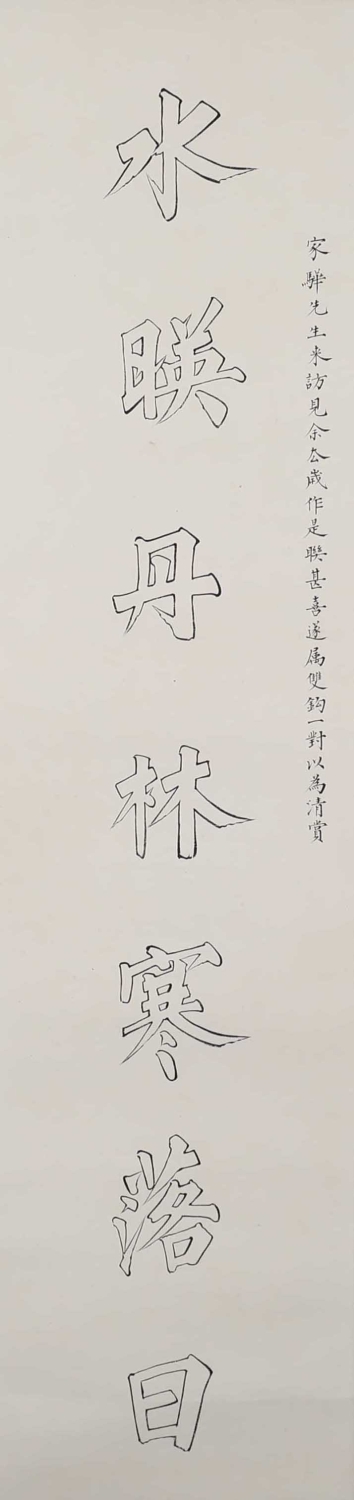 家驊先生来訪見余厺歲作是聯甚喜遂属雙鈎一對以為清賞
水暎丹林寒落日